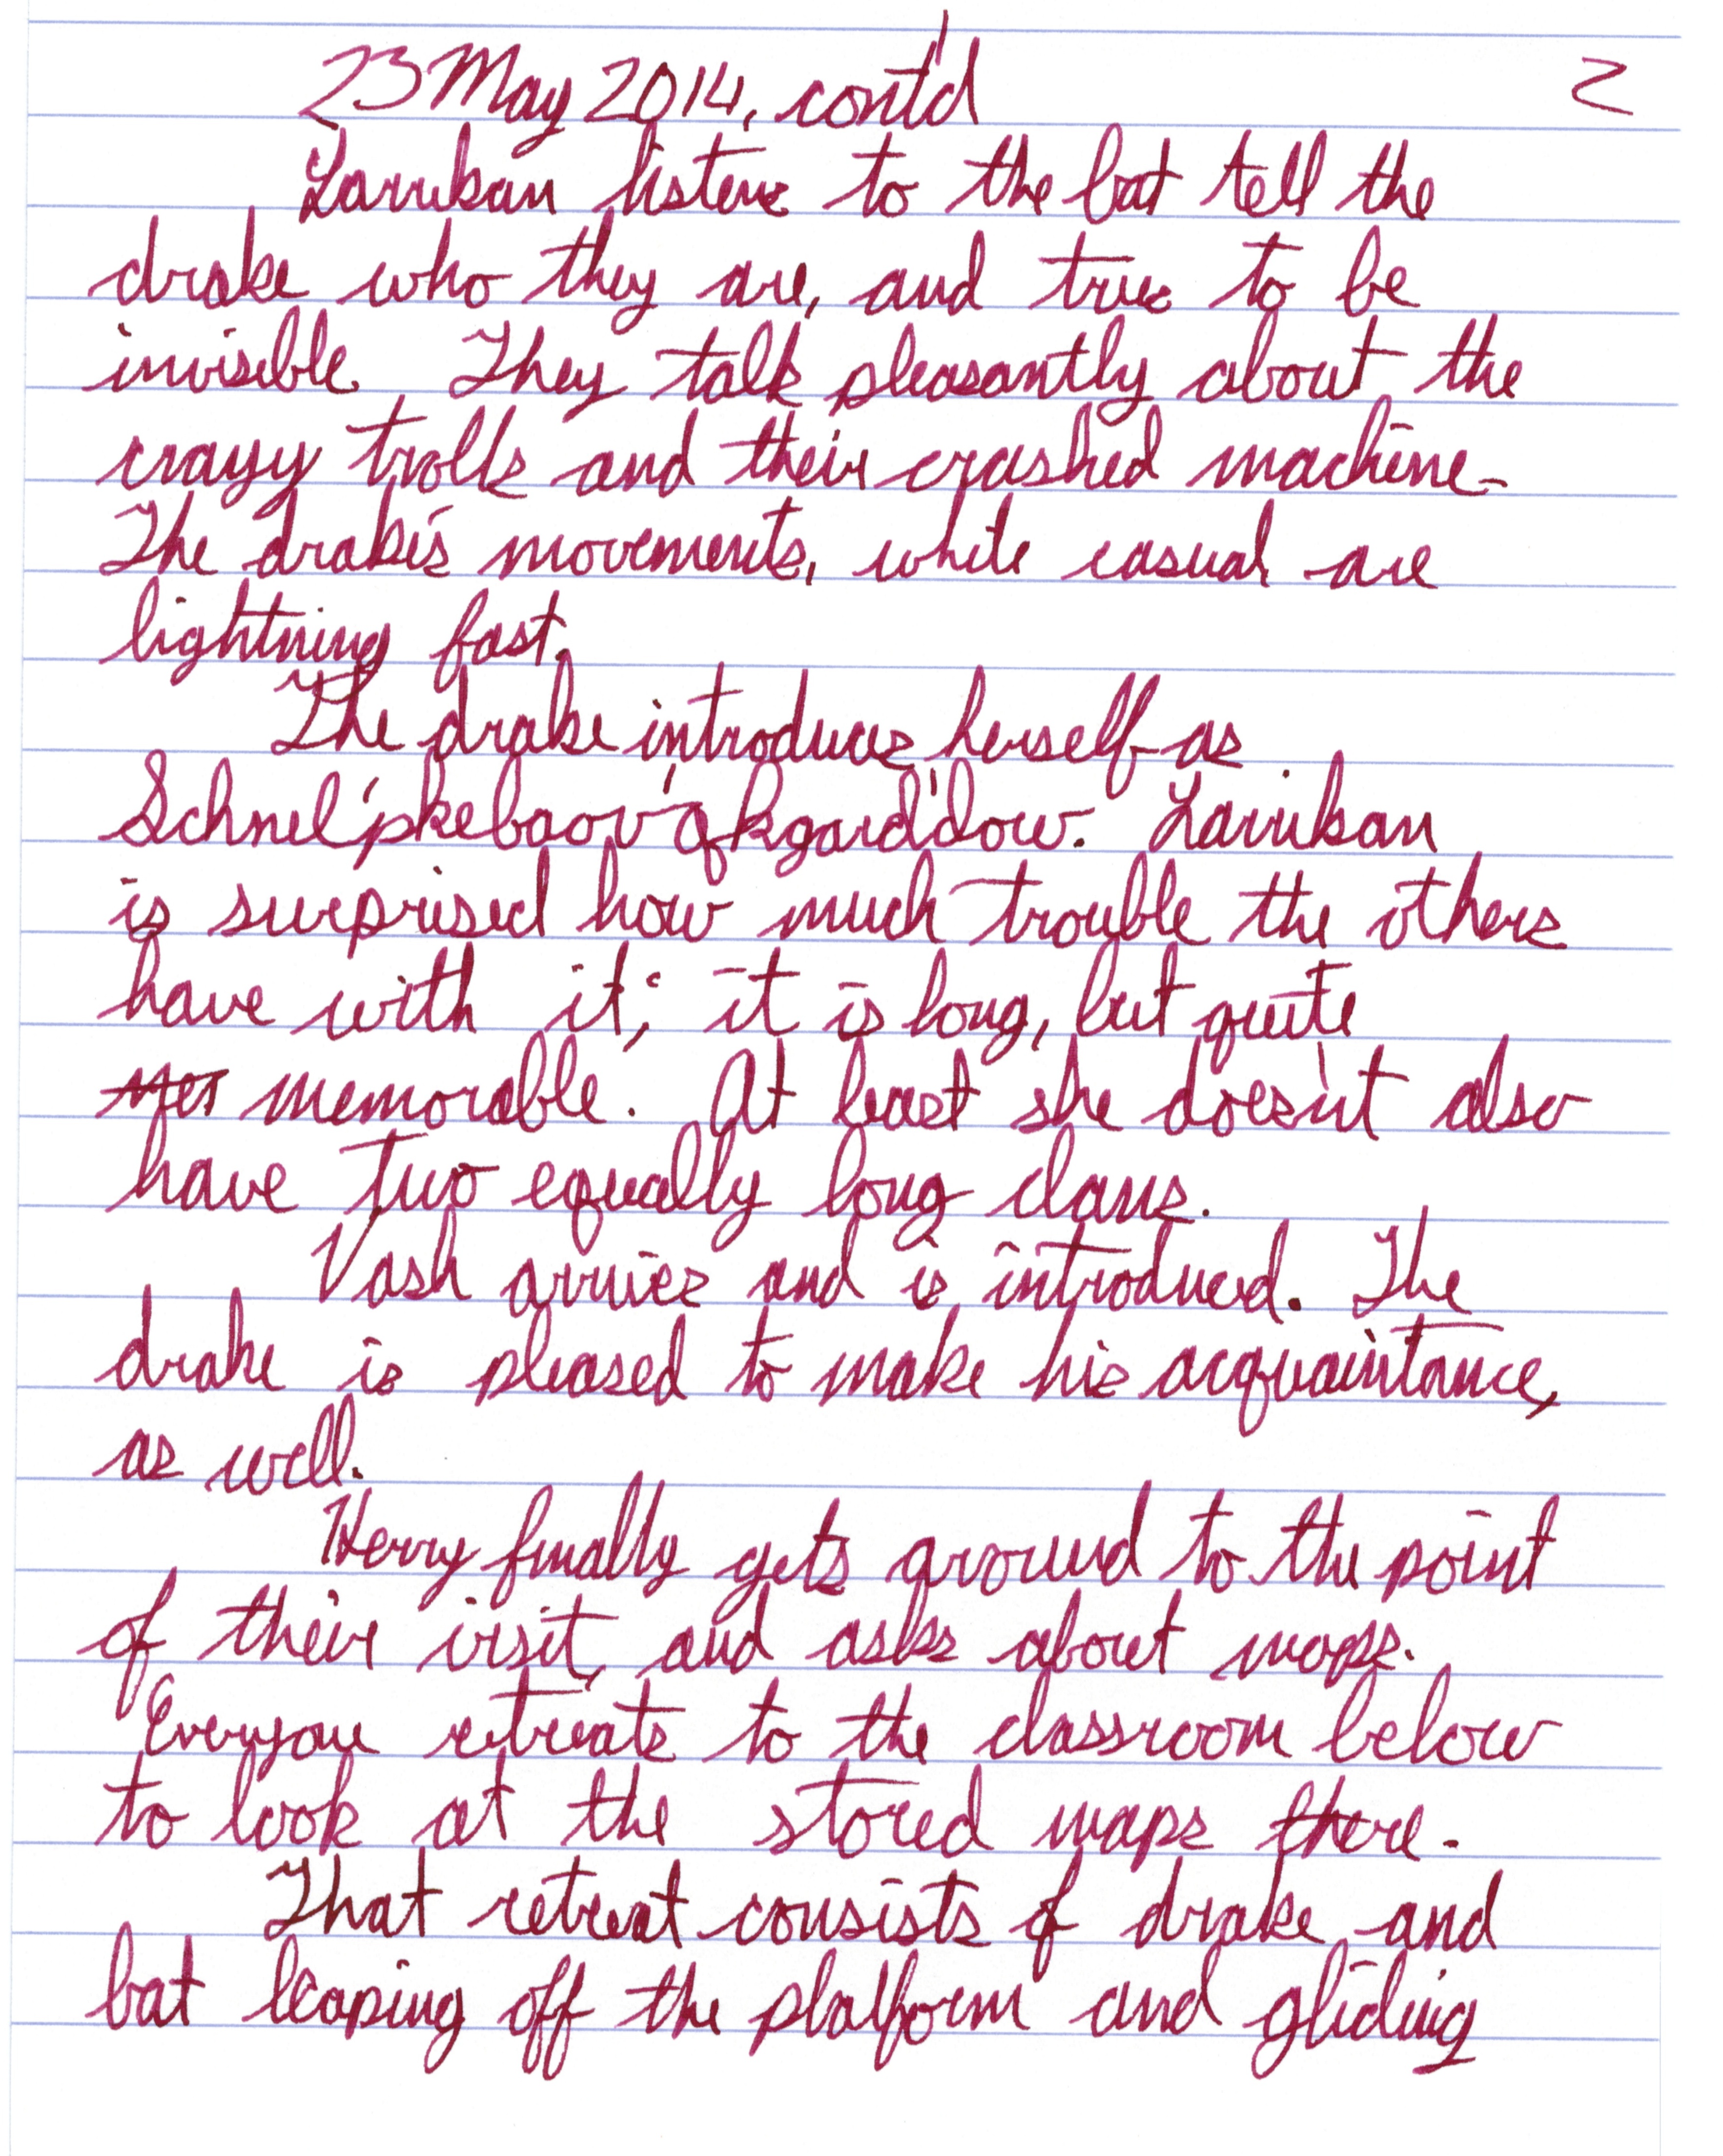 23 May 2014, cont'd 2
Larrikan listens to the bat tell the
drake who they are, and tries to be
invisible. They talk pleasantly about the
crazy trolls and their crashed machine.
The drake's movements, while casual are
lightning fast.
The drake introduces herself as
Schnel'pkebaov'qkgard'dow. Larrikan
is surprised how much trouble the others
have with it; it is long, but quite
memorable. At least she doesn't also
have two equally long clans.
Vash arrives and is introduced. The
drake is pleased to make his acquaintance,
as well.
Herry finally gets around to the point
of their visit, and asks about maps.
Everyone retreats to the classroom below
to look at the stored maps there.
That retreat consists of drake and
bat leaping off the platform and gliding